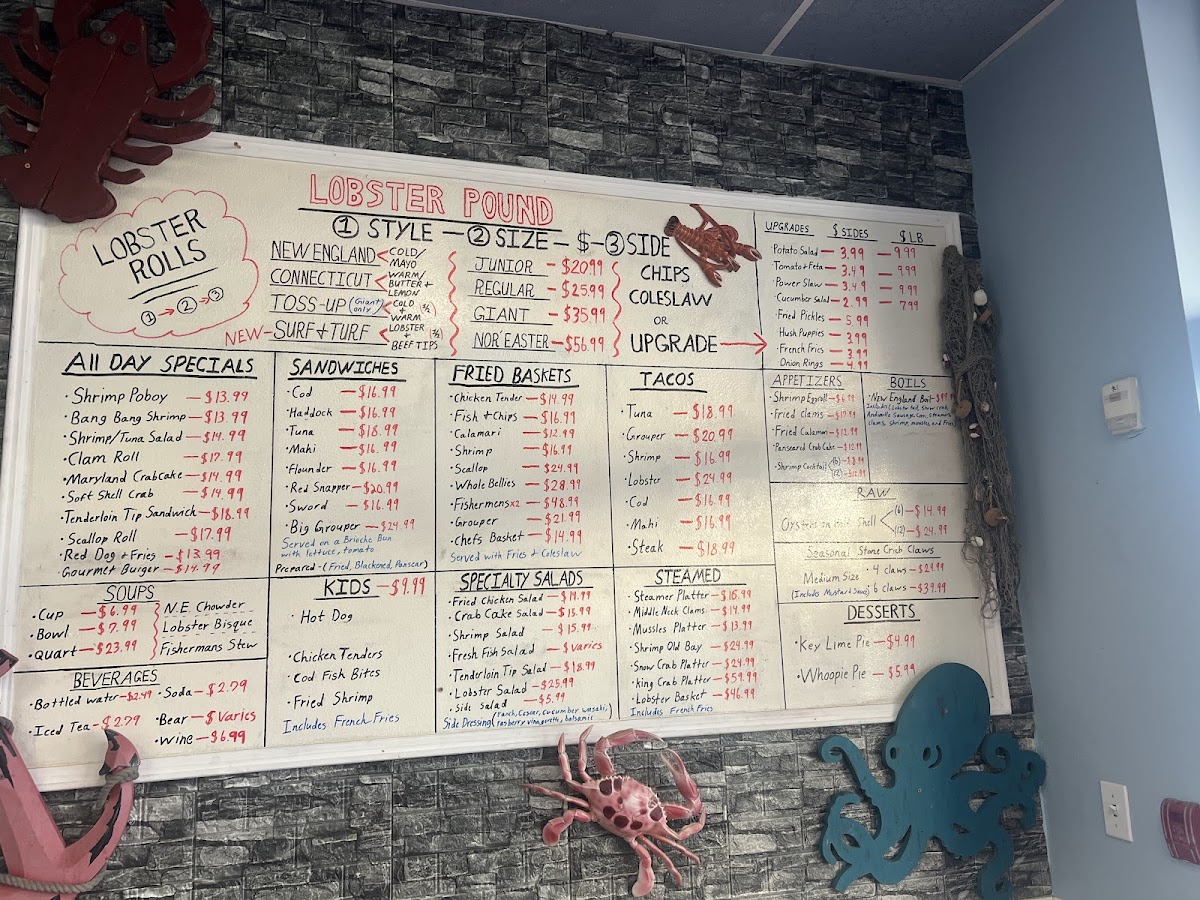 LOBSTER POUND
LOBSTER
ROLLS
1 → 2 → 3
① STYLE — ② SIZE — $ — ③ SIDE
NEW ENGLAND < COLD/
MAYO
CONNECTICUT < WARM/
BUTTER +
LEMON
TOSS-UP (Giant only) < COLD
+
WARM ½
NEW- SURF & TURF < LOBSTER
&
BEEF TIPS ½
JUNIOR - $20.99
REGULAR - $25.99
GIANT - $35.99
NOR'EASTER - $56.99
CHIPS
COLESLAW
OR
UPGRADE →
UPGRADES $ SIDES $ LB
·Potato Salad - 3.99 - 9.99
·Tomato + Feta - 3.49 - 9.99
·Power Slaw - 3.49 - 9.99
·Cucumber Salad - 2.99 - 7.99
·Fried Pickles - 5.99
·Hush Puppies - 3.99
·French Fries - 3.99
·Onion Rings - 4.99
All DAY SPECIALS
·Shrimp Poboy - $13.99
·Bang Bang Shrimp - $13.99
·Shrimp/Tuna Salad - $14.99
·Clam Roll - $17.99
·Maryland Crabcake - $14.99
·Soft Shell Crab - $14.99
·Tenderloin Tip Sandwich - $18.99
·Scallop Roll - $17.99
·Red Dog + Fries - $13.99
·Gourmet Burger - $14.99
SANDWICHES
·Cod - $16.99
·Haddock - $16.99
·Tuna - $18.99
·Mahi - $16.99
·Flounder - $16.99
·Red Snapper - $20.99
·Sword - $16.99
·Big Grouper - $24.99
Served on a Brioche Bun
with lettuce, tomato
Prepared - (Fried, Blackened, Pansear)
FRIED BASKETS
·Chicken Tender - $14.99
·Fish + Chips - $16.99
·Calamari - $12.99
·Shrimp - $16.99
·Scallop - $24.99
·Whole Bellies - $28.99
·Fishermens x2 - $48.99
·Grouper - $21.99
·Chefs Basket - $14.99
Served with Fries + Coleslaw
TACOS
·Tuna - $18.99
·Grouper - $20.99
·Shrimp - $16.99
·Lobster - $24.99
·Cod - $16.99
·Mahi - $16.99
·Steak - $18.99
APPETIZERS
·Shrimp Eggroll
·Fried Clams
·Fried Calamari - $12.99
·Panseared Crab Cake
·Shrimp Cocktail (6)
(12)
BOILS
·New England Boil
Includes (Lobster tail, Snow crab,
Andouille Sausage, Corn, Potatoes,
clams, shrimp, mussels, and Fries)
RAW
Oysters on Half Shell < (6) - $14.99
(12) - $24.99
Seasonal Stone Crab Claws
Medium Size · 4 claws - $29.99
(Includes Mustard Sauce) · 6 claws - $39.99
SOUPS
·Cup - $6.99
·Bowl - $7.99
·Quart - $23.99
N.E. Chowder
Lobster Bisque
Fishermans Stew
BEVERAGES
·Bottled water - $2.49 ·Soda - $2.79
·Iced Tea - $2.79 ·Bear - $ Varies
·Wine - $6.99
KIDS - $9.99
·Hot Dog
·Chicken Tenders
·Cod Fish Bites
·Fried Shrimp
Includes French Fries
SPECIALTY SALADS
·Fried Chicken Salad - $14.99
·Crab Cake Salad - $15.99
·Shrimp Salad - $15.99
·Fresh Fish Salad - $ varies
·Tenderloin Tip Salad - $18.99
·Lobster Salad - $25.99
·Side Salad - $5.99
Side Dressing (ranch, Cesear, cucumber wasabi,
rasberry vinagarette, balsamic)
STEAMED
·Steamer Platter - $16.99
·Middle Neck Clams - $14.99
·Mussles Platter - $13.99
·Shrimp Old Bay - $24.99
·Snow Crab Platter - $24.99
·King Crab Platter - $59.99
·Lobster Basket - $46.99
Includes French Fries
DESSERTS
·Key Lime Pie - $4.99
·Whoopie Pie - $5.99